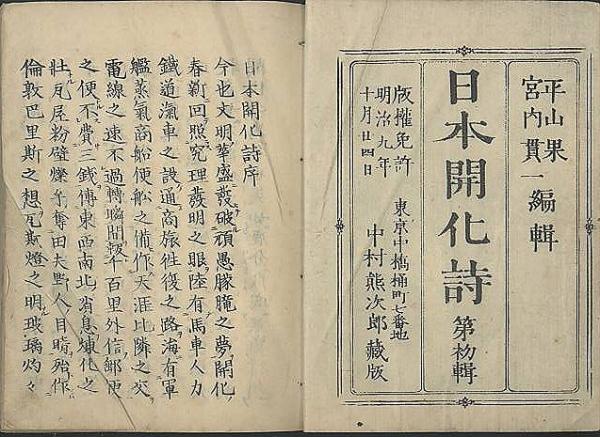 平山果
宮内貫一 編輯
日本開化詩 第初輯
版權免許
明治九年
十月廿四日
東京中橋桶町七番地
中村熊次郎藏版
日本開化詩序
今也文明華盛發破頑愚朦朧之夢開化
春新回照究理發明之眼陸有馬車人力
鐵道滊車之設通商旅徃復之路海有軍
艦蒸氣商船便舩之備作天涯比隣之交
電線之速不過轉瞬間報千百里外信郵便
之便不費三錢傳東西南北省息煉化之
壯瓦屋粉壁爍尓奪田夫野人目暗殆作
倫敦巴里斯之想瓦斯燈之明玻璃灼々